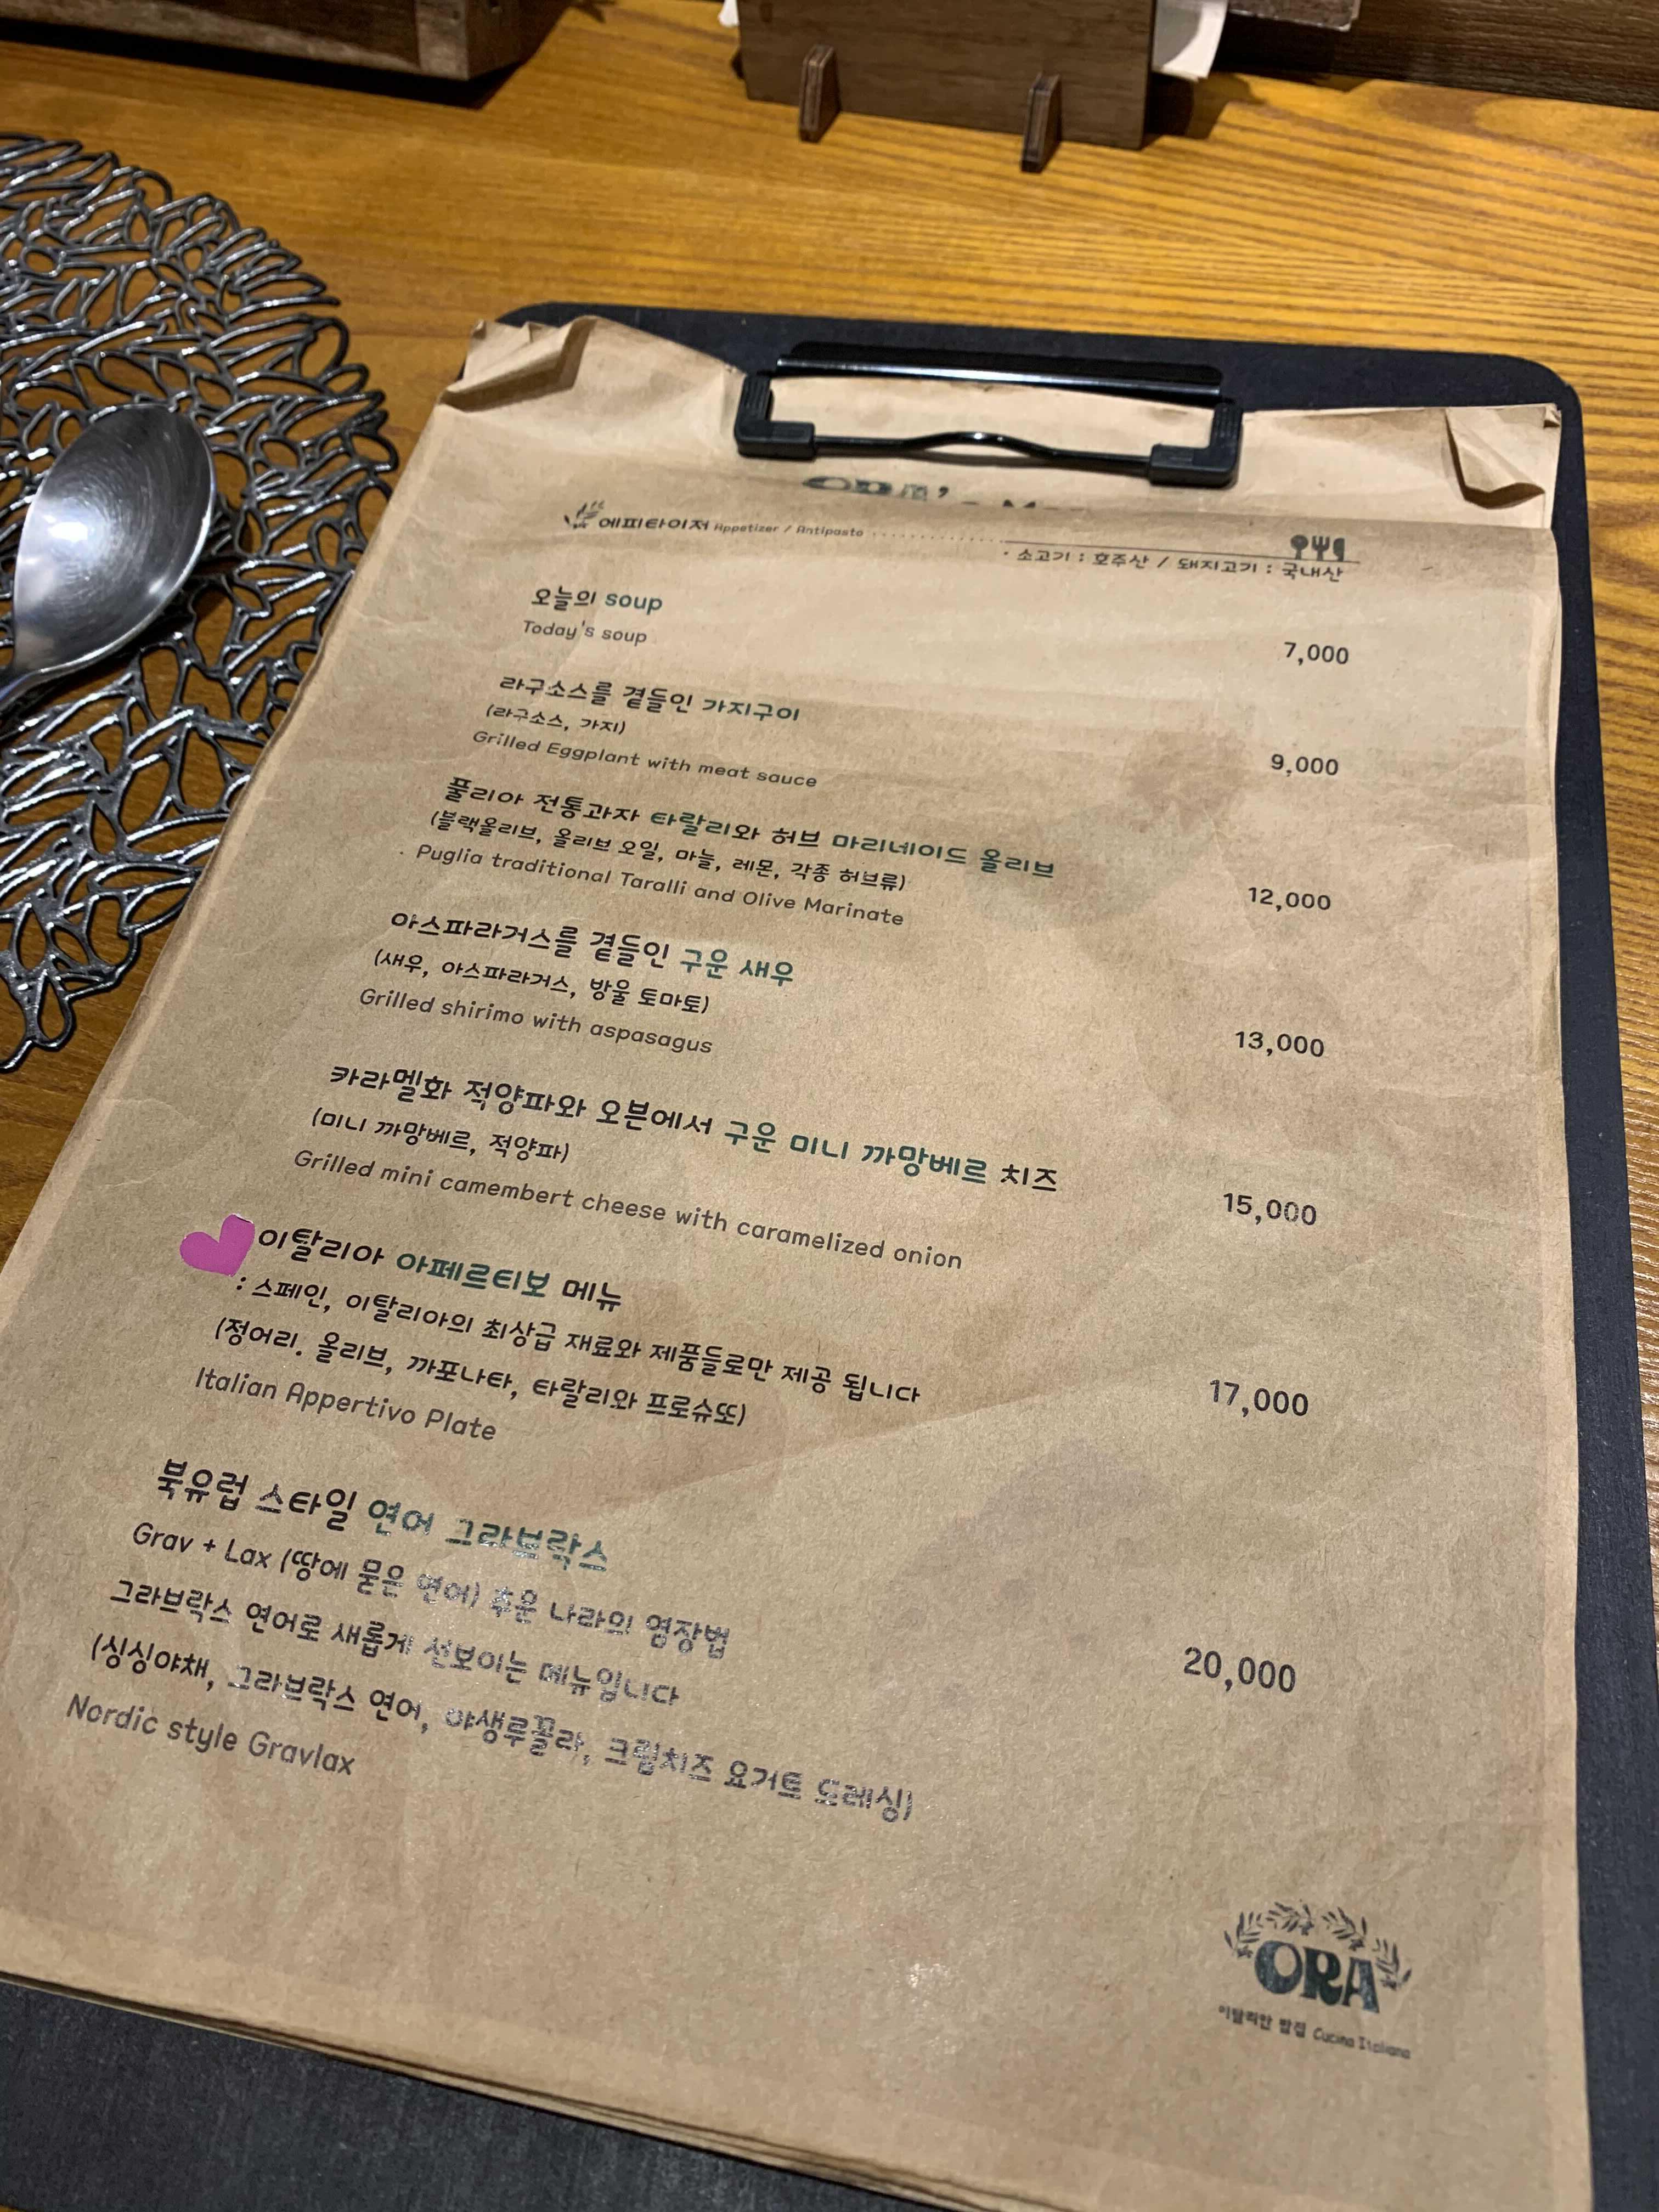 에피타이저 Appetizer / Antipasto
· 소고기 : 호주산 / 돼지고기 : 국내산
오늘의 soup
Today's soup
7,000
라구소스를 곁들인 가지구이
(라구소스, 가지)
Grilled Eggplant with meat sauce
9,000
풀리아 전통과자 타랄리와 허브 마리네이드 올리브
(블랙올리브, 올리브 오일, 마늘, 레몬, 각종 허브류)
Puglia traditional Taralli and Olive Marinate
12,000
아스파라거스를 곁들인 구운 새우
(새우, 아스파라거스, 방울 토마토)
Grilled shirimo with aspasagus
13,000
카라멜화 적양파와 오븐에서 구운 미니 까망베르 치즈
(미니 까망베르, 적양파)
Grilled mini camembert cheese with caramelized onion
15,000
이탈리아 아페르티보 메뉴
: 스페인, 이탈리아의 최상급 재료와 제품들로만 제공 됩니다
(정어리. 올리브, 까포나타, 타랄리와 프로슈또)
Italian Appertivo Plate
17,000
북유럽 스타일 연어 그라브락스
Grav + Lax (땅에 묻은 연어) 추운 나라의 염장법
그라브락스 연어로 새롭게 선보이는 메뉴입니다
(싱싱야채, 그라브락스 연어, 야생루꼴라, 크림치즈 요거트 드레싱)
Nordic style Gravlax
20,000
ORA
이탈리안 밥집 Cucina Italiana